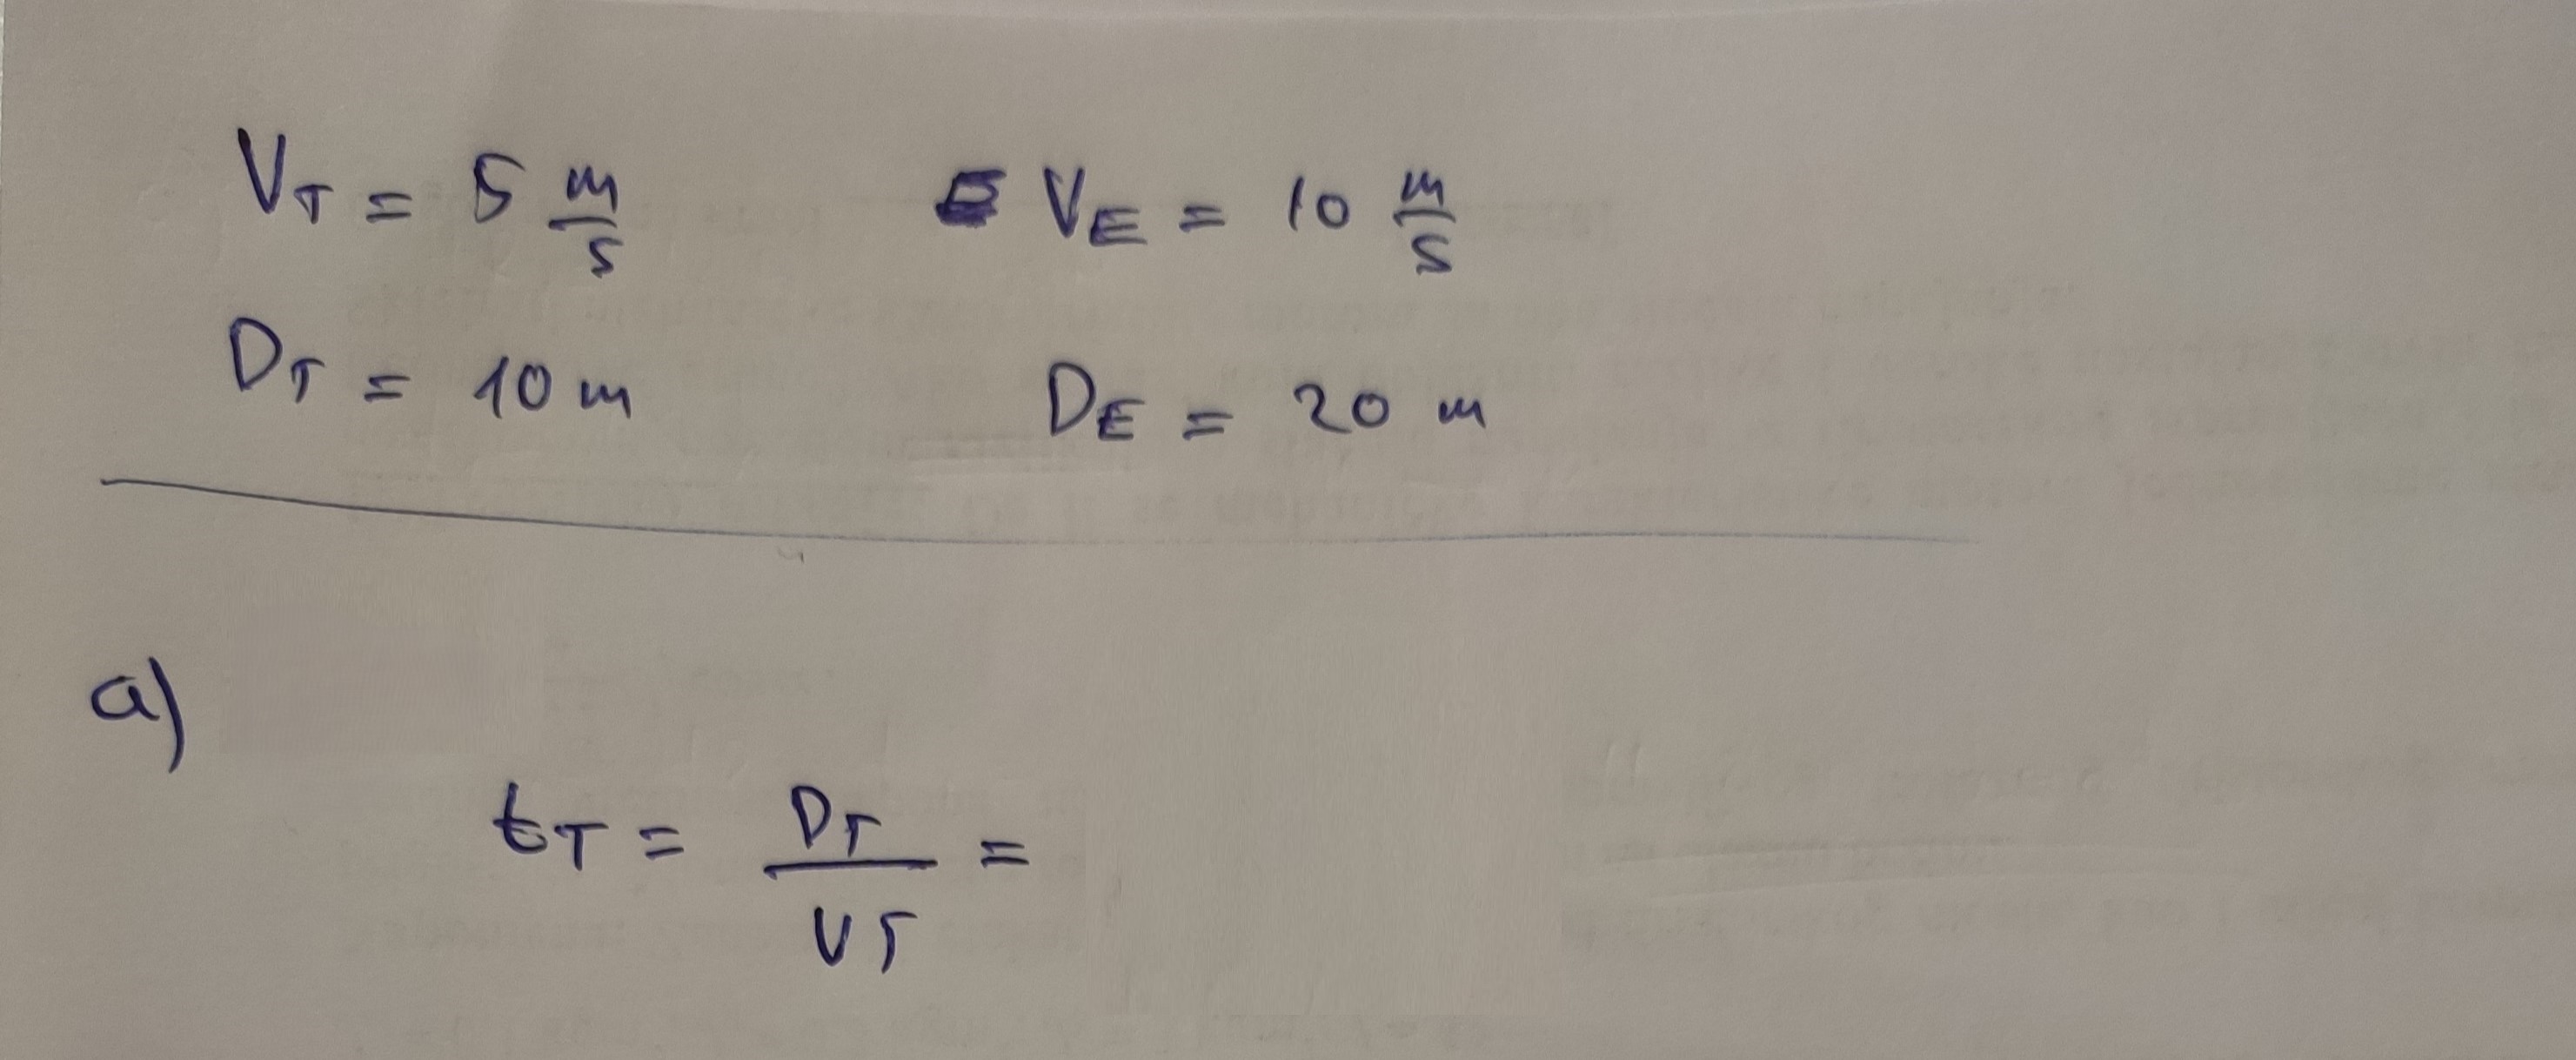 V_T = 5 m/s V_E = 10 m/s
D_T = 10 m D_E = 20 m
a)
t_T = D_T/V_T =